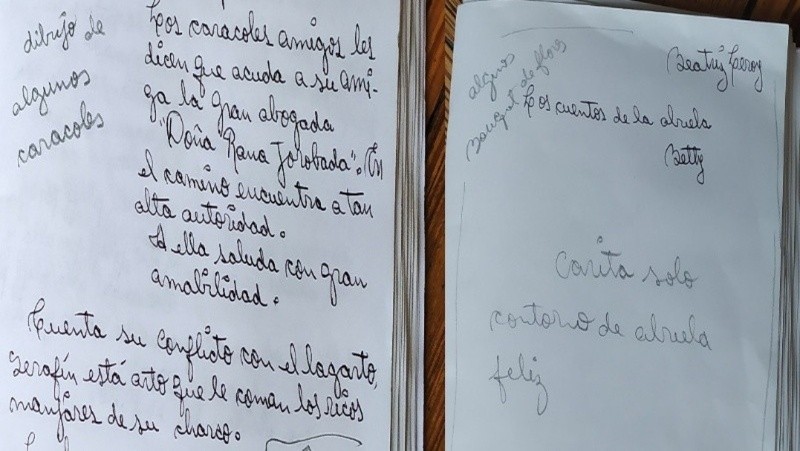 dibujo de
algunos
caracoles
Los caracoles amigos les
dicen que acuda a su ami-
ga la gran abogada
"Doña Rana Jorobada". En
el camino encuentra a tan
alta autoridad.
A ella saluda con gran
amabilidad.
Cuenta su conflicto con el lagarto,
serafín está arto que le coman los ricos
manjares de su charco.
Beatriz
algunos
Bouquet de flores
Los cuentos de la abuela
Betty
Carita solo
contorno de abuela
feliz